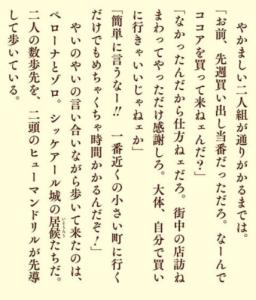 やかましい二人組が通りかかるまでは。
「お前、先週買い出し当番だっただろ。なーんで
ココアを買って来ねェんだ？」
「なかったんだから仕方ねェだろ。街中の店訪ね
まわってやっただけ感謝しろ。大体、自分で買い
に行きゃいいじゃねェか」
「簡単に言うなー!!　一番近くの小さい町に行く
だけでもめちゃくちゃ時間かかるんだぞ！」
やいのやいの言い合いながら歩いて来たのは、
ペローナとゾロ。シッケアール城の居候たちだ。
二人の数歩先を、二頭のヒューマンドリルが先導
して歩いている。